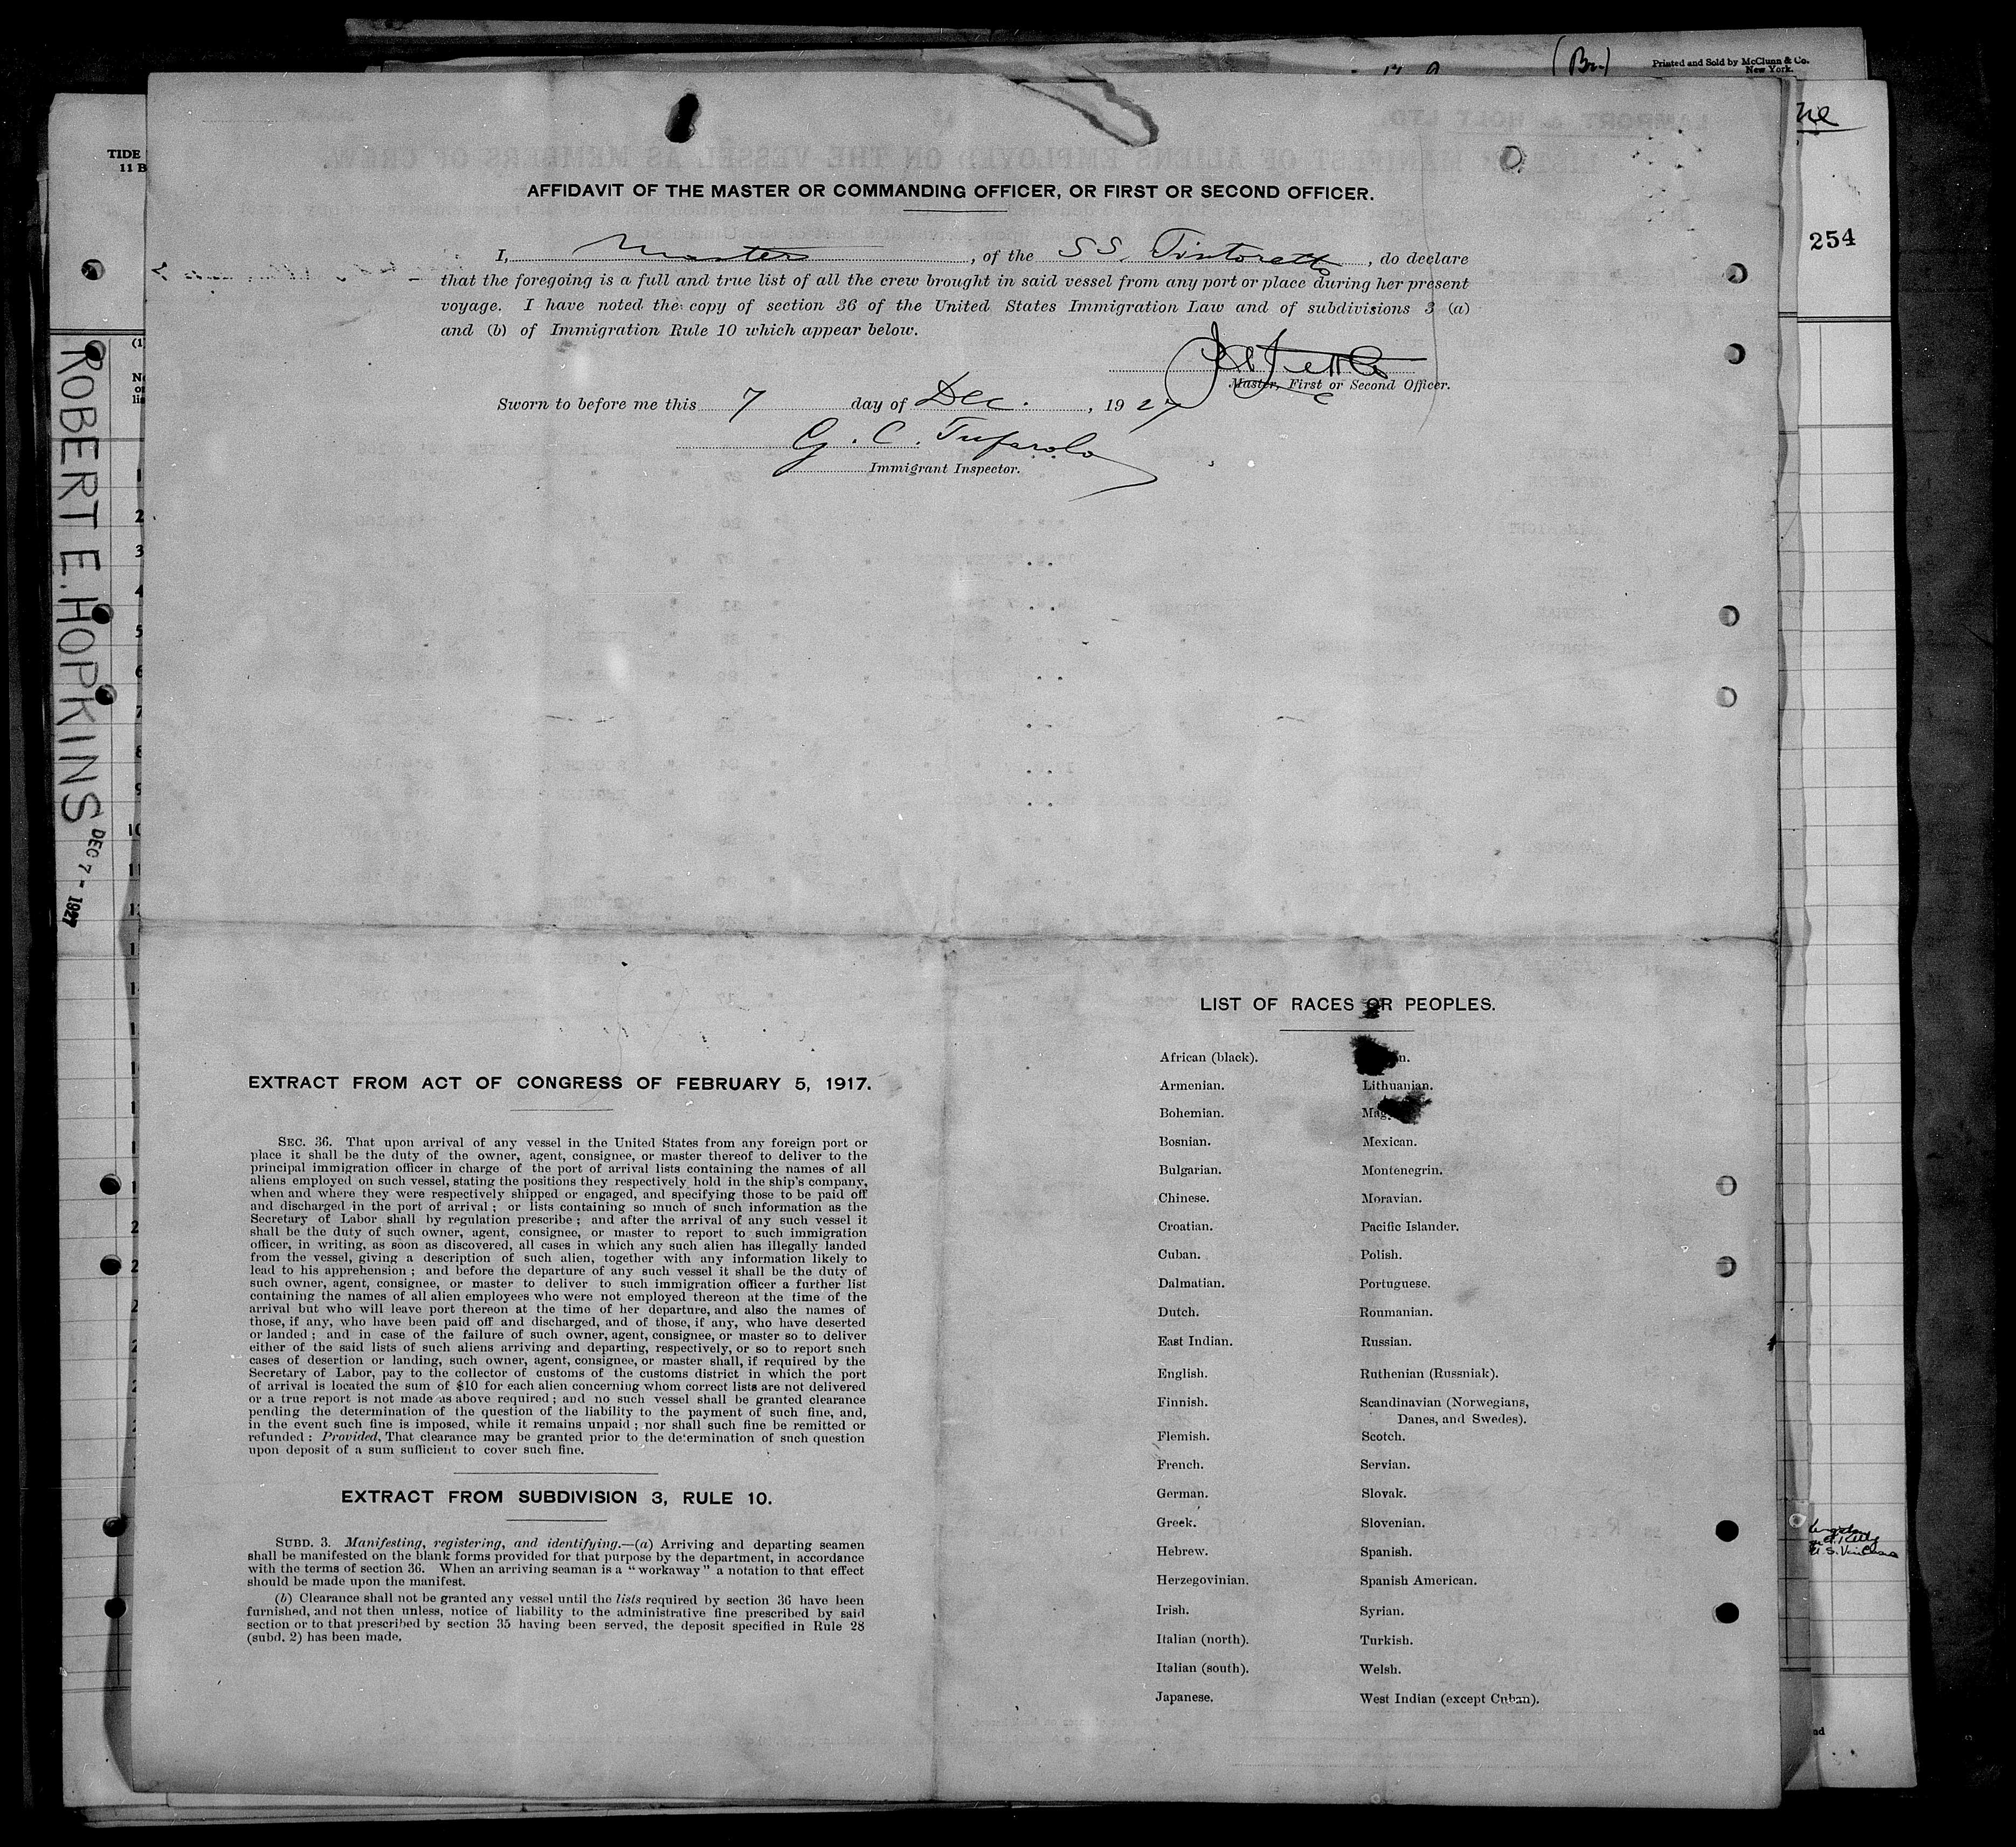 (Bn)
Printed and Sold by McClunn & Co.
New York.
TIDE
11 B
254
AFFIDAVIT OF THE MASTER OR COMMANDING OFFICER, OR FIRST OR SECOND OFFICER.
I, Master, of the SS. Tintoretto, do declare
that the foregoing is a full and true list of all the crew brought in said vessel from any port or place during her present
voyage. I have noted the copy of section 36 of the United States Immigration Law and of subdivisions 3 (a)
and (b) of Immigration Rule 10 which appear below.
Master, First or Second Officer.
Sworn to before me this 7 day of Dec., 1927
G. C.
Immigrant Inspector.
ROBERT E. HOPKINS
DEC 7 - 1927
EXTRACT FROM ACT OF CONGRESS OF FEBRUARY 5, 1917.
SEC. 36. That upon arrival of any vessel in the United States from any foreign port or
place it shall be the duty of the owner, agent, consignee, or master thereof to deliver to the
principal immigration officer in charge of the port of arrival lists containing the names of all
aliens employed on such vessel, stating the positions they respectively hold in the ship's company,
when and where they were respectively shipped or engaged, and specifying those to be paid off
and discharged in the port of arrival; or lists containing so much of such information as the
Secretary of Labor shall by regulation prescribe; and after the arrival of any such vessel it
shall be the duty of such owner, agent, consignee, or master to report to such immigration
officer, in writing, as soon as discovered, all cases in which any such alien has illegally landed
from the vessel, giving a description of such alien, together with any information likely to
lead to his apprehension; and before the departure of any such vessel it shall be the duty of
such owner, agent, consignee, or master to deliver to such immigration officer a further list
containing the names of all alien employees who were not employed thereon at the time of the
arrival but who will leave port thereon at the time of her departure, and also the names of
those, if any, who have been paid off and discharged, and of those, if any, who have deserted
or landed; and in case of the failure of such owner, agent, consignee, or master so to deliver
either of the said lists of such aliens arriving and departing, respectively, or so to report such
cases of desertion or landing, such owner, agent, consignee, or master shall, if required by the
Secretary of Labor, pay to the collector of customs of the customs district in which the port
of arrival is located the sum of $10 for each alien concerning whom correct lists are not delivered
or a true report is not made as above required; and no such vessel shall be granted clearance
pending the determination of the question of the liability to the payment of such fine, and,
in the event such fine is imposed, while it remains unpaid; nor shall such fine be remitted or
refunded: Provided, That clearance may be granted prior to the determination of such question
upon deposit of a sum sufficient to cover such fine.
EXTRACT FROM SUBDIVISION 3, RULE 10.
SUBD. 3. Manifesting, registering, and identifying.—(a) Arriving and departing seamen
shall be manifested on the blank forms provided for that purpose by the department, in accordance
with the terms of section 36. When an arriving seaman is a "workaway" a notation to that effect
should be made upon the manifest.
(b) Clearance shall not be granted any vessel until the lists required by section 36 have been
furnished, and not then unless, notice of liability to the administrative fine prescribed by said
section or to that prescribed by section 35 having been served, the deposit specified in Rule 28
(subd. 2) has been made.
LIST OF RACES OR PEOPLES.
African (black).
Armenian.
Bohemian.
Bosnian.
Bulgarian.
Chinese.
Croatian.
Cuban.
Dalmatian.
Dutch.
East Indian.
English.
Finnish.
Flemish.
French.
German.
Greek.
Hebrew.
Herzegovinian.
Irish.
Italian (north).
Italian (south).
Japanese.
Lithuanian.
Mexican.
Montenegrin.
Moravian.
Pacific Islander.
Polish.
Portuguese.
Roumanian.
Russian.
Ruthenian (Russniak).
Scandinavian (Norwegians,
Danes, and Swedes).
Scotch.
Servian.
Slovak.
Slovenian.
Spanish.
Spanish American.
Syrian.
Turkish.
Welsh.
West Indian (except Cuban).